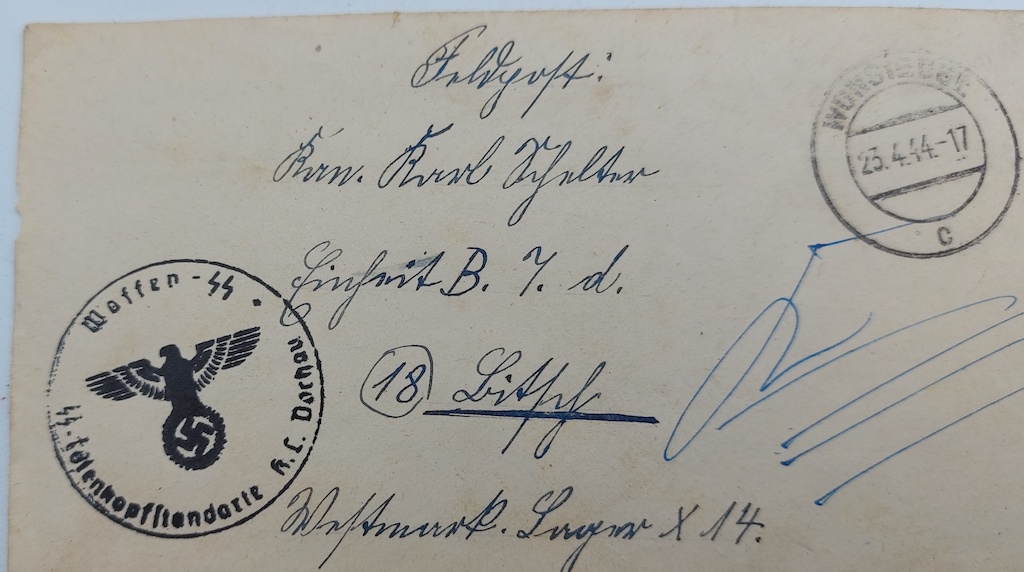 Feldpost:
Kan. Karl Schelter
Einheit B. 7. d.
(18) Bitsch
Westmark. Lager X 14.
WUNSIEDEL
23.4.44.-17
c
Waffen-SS
SS-Totenkopfstandarte K.L. Dachau